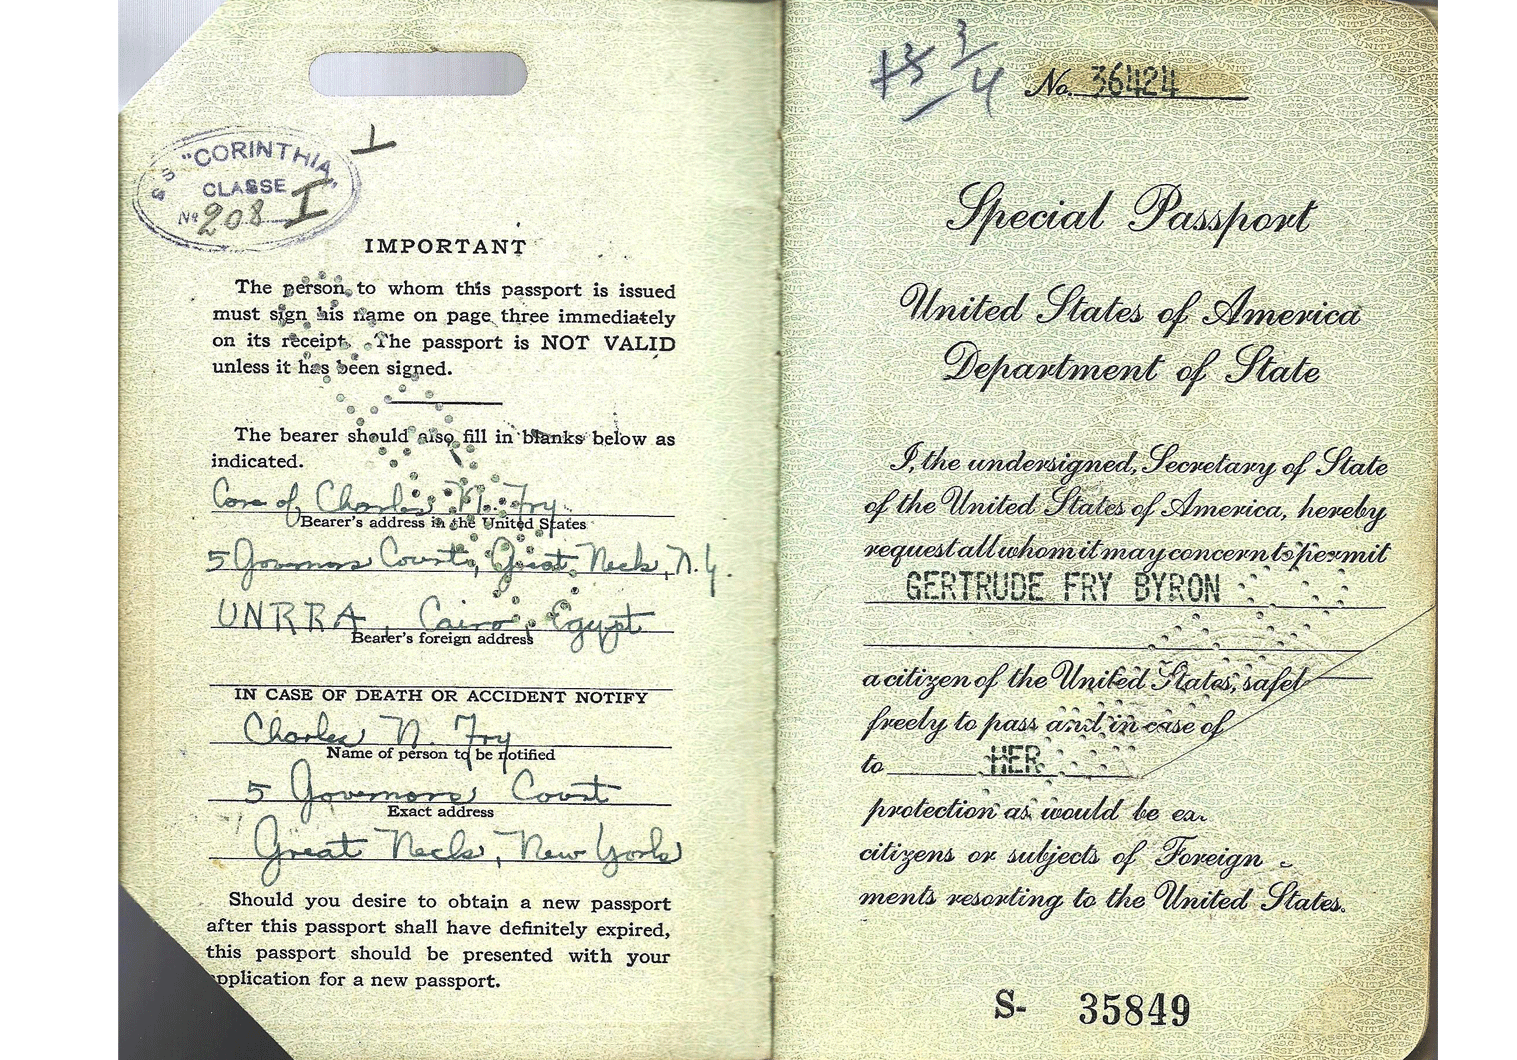 S S "CORINTHIA"
CLASSE
Nº 208 I
IMPORTANT
The person to whom this passport is issued
must sign his name on page three immediately
on its receipt. The passport is NOT VALID
unless it has been signed.
The bearer should also fill in blanks below as
indicated.
Care of Charles N. Fry
Bearer's address in the United States
5 Governors Court, Great Neck, N.Y.
UNRRA, Cairo, Egypt
Bearer's foreign address
IN CASE OF DEATH OR ACCIDENT NOTIFY
Charles N. Fry
Name of person to be notified
5 Governors Court
Exact address
Great Neck, New York
Should you desire to obtain a new passport
after this passport shall have definitely expired,
this passport should be presented with your
application for a new passport.
3 3
4
No. 36424
Special Passport
United States of America
Department of State
I, the undersigned, Secretary of State
of the United States of America, hereby
request all whom it may concern to permit
GERTRUDE FRY BYRON
a citizen of the United States, safel
freely to pass and in case of
to HER
protection as would be ex
citizens or subjects of Foreign
ments resorting to the United States.
S- 35849